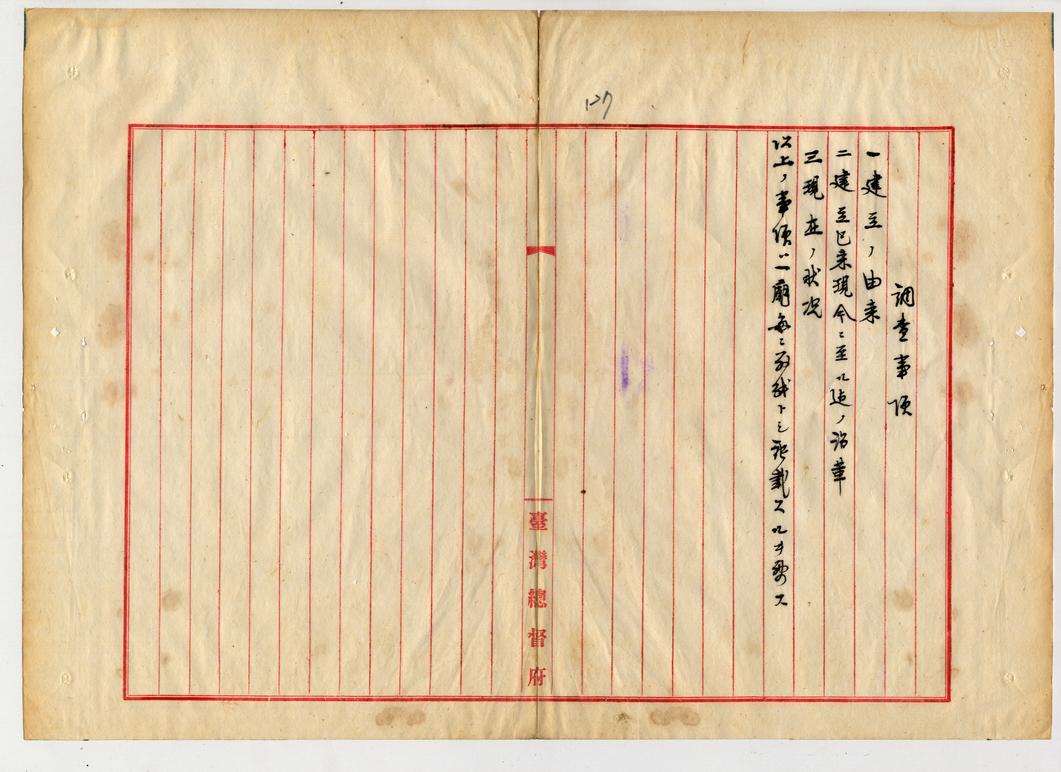 127
調査事項
一建立ノ由来
二建立已来現今ニ至ル迠ノ沿革
三現在ノ状況
以上ノ事項ハ一廟毎ニ別紙トシ記載スルヲ要ス
臺灣總督府